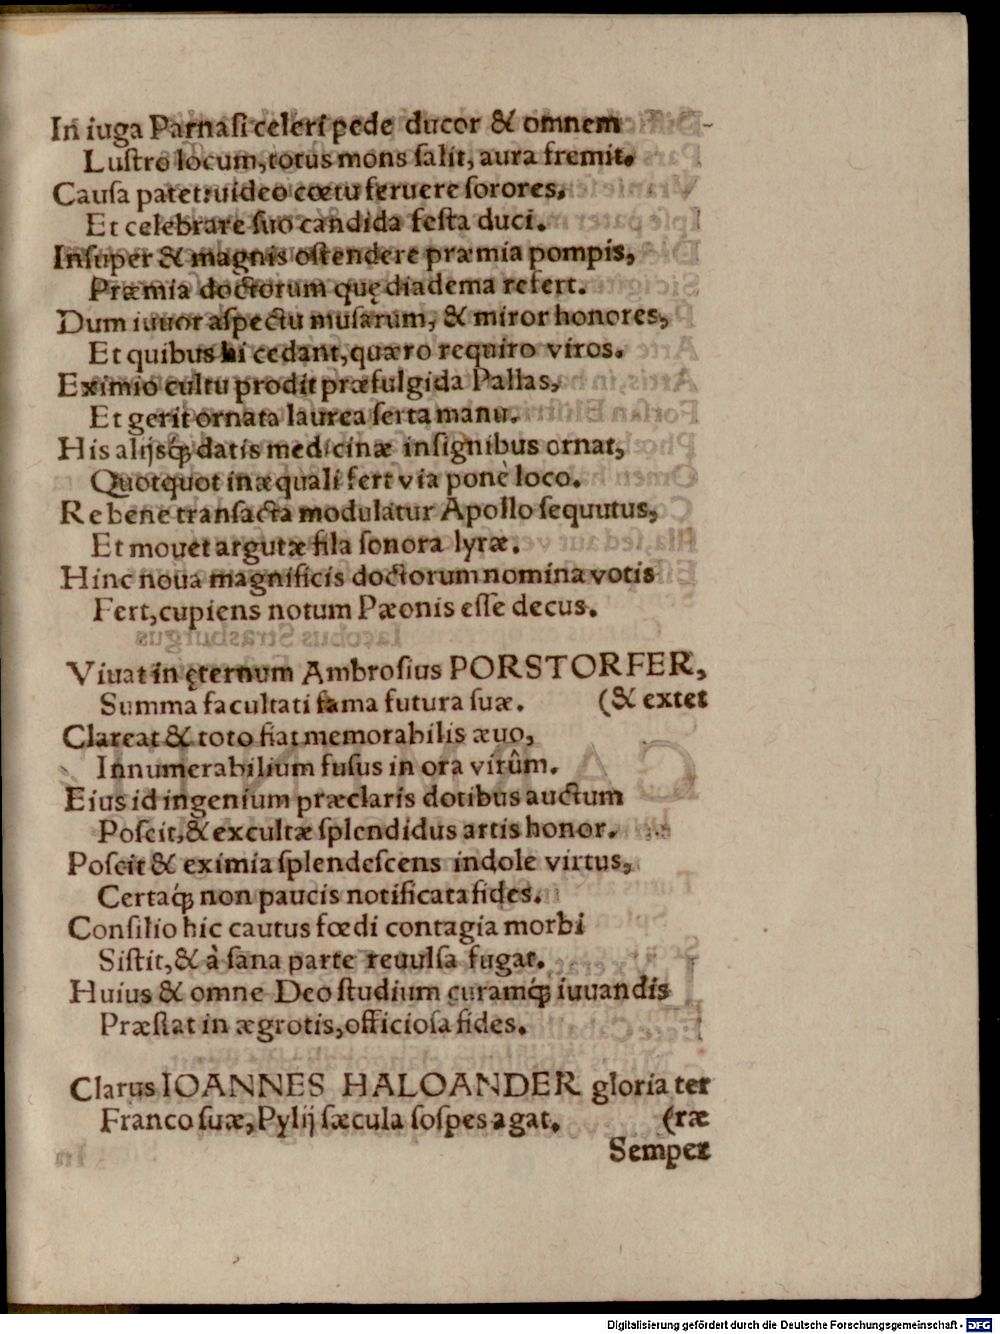 In iuga Parnasi celeri pede ducor & omnem
Lustro locum, totus mons salit, aura fremit.
Causa patet: uideo cœtu feruere sorores,
Et celebrare suo candida festa duci.
Insuper & magnis ostendere præmia pompis,
Præmia doctorum quę diadema refert.
Dum iuuor aspectu musarum, & miror honores,
Et quibus hi cedant, quæro requiro viros.
Eximio cultu prodit præfulgida Pallas,
Et gerit ornata laurea serta manu.
His alijsq́ꝫ datis medicinæ insignibus ornat,
Quotquot inæquali fert via ponè loco.
Re bene transacta modulatur Apollo sequutus,
Et mouet argutæ fila sonora lyræ.
Hinc noua magnificis doctorum nomina votis
Fert, cupiens notum Pæonis esse decus.
Viuat in ęternum Ambrosius PORSTORFER,
Summa facultati fama futura suæ. (& extet
Clareat & toto fiat memorabilis æuo,
Innumerabilium fusus in ora virûm.
Eius id ingenium præclaris dotibus auctum
Poscit, & excultæ splendidus artis honor.
Poscit & eximia splendescens indole virtus,
Certaq́ꝫ non paucis notificata fides.
Consilio hic cautus fœdi contagia morbi
Sistit, & à sana parte reuulsa fugat.
Huius & omne Deo studium curamq́ꝫ iuuandis
Præstat in ægrotis, officiosa fides.
Clarus IOANNES HALOANDER gloria ter
Franco suæ, Pylij sæcula sospes agat. (ræ
Semper
Digitalisierung gefördert durch die Deutsche Forschungsgemeinschaft - DFG